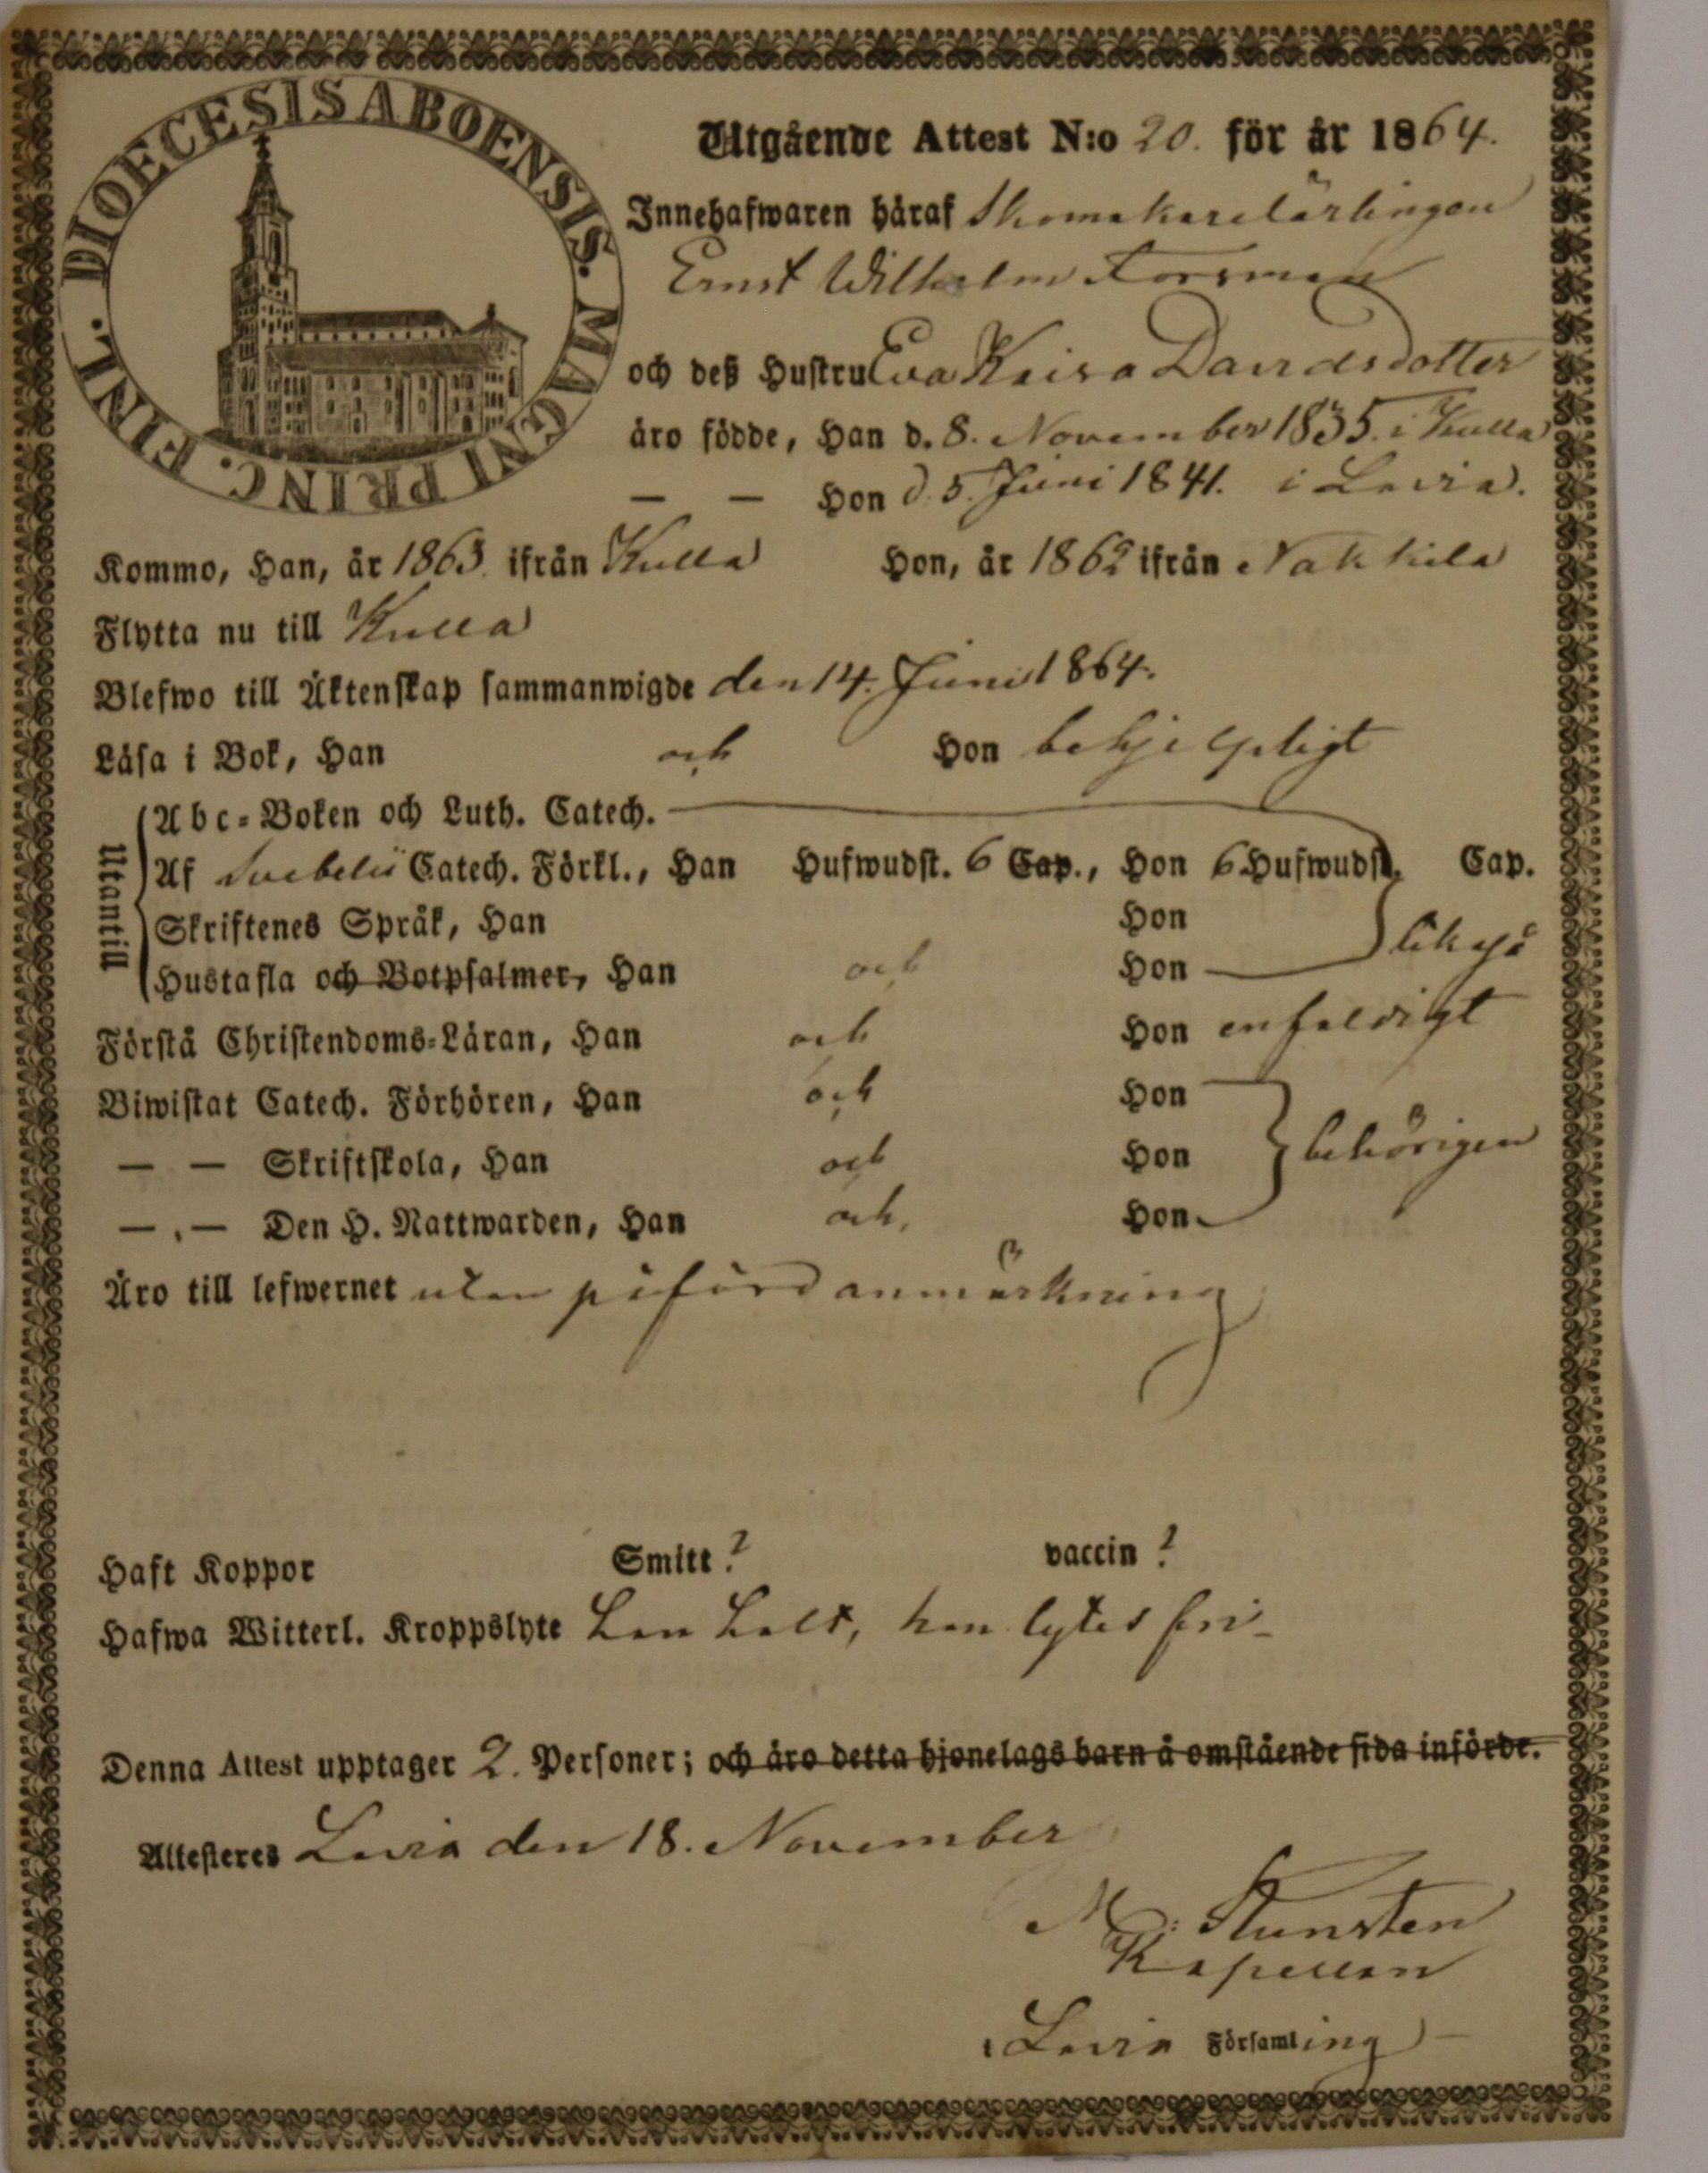 DIOECESIS ABOENSIS. MAGNI PRINC. FINL.
Utgående Attest N:o 20. för år 1864.
Innehafwaren häraf Skomakarelärlingen
Ernst Wilhelm Forsman
och deß Hustru Eva Kaisa Davidsdotter
äro födde, Han d. 8. November 1835. i Kulla
— — Hon d. 5. Juni 1841. i Lavia.
Kommo, Han, år 1863. ifrån Kulla Hon, år 1862 ifrån Nakkila
Flytta nu till Kulla
Blefwo till Äktenskap sammanwigde den 14. Juni 1864.
Läsa i Bok, Han och Hon behjelpligt
Utantill
Abc-Boken och Luth. Catech.
Af Svebelii Catech. Förkl., Han Hufwudst. 6 Cap., Hon 6 Hufwudst. Cap.
Skriftenes Språk, Han Hon
likaså
Hustafla och Botpsalmer, Han och Hon
Förstå Christendoms-Läran, Han och Hon enfaldigt
Biwistat Catech. Förhören, Han och Hon
— — Skriftskola, Han och Hon behörigen
— . — Den H. Nattwarden, Han och, Hon
Äro till lefwernet utan påförd anmärkning
Haft Koppor Smitt? vaccin?
Hafwa Witterl. Kroppslyte han halt, hon lytes fri-
Denna Attest upptager 2. Personer; och äro detta hjonelags barn å omstående sida införde.
Attesteres Lavia den 18. November
Kapellan
i Lavia Församling